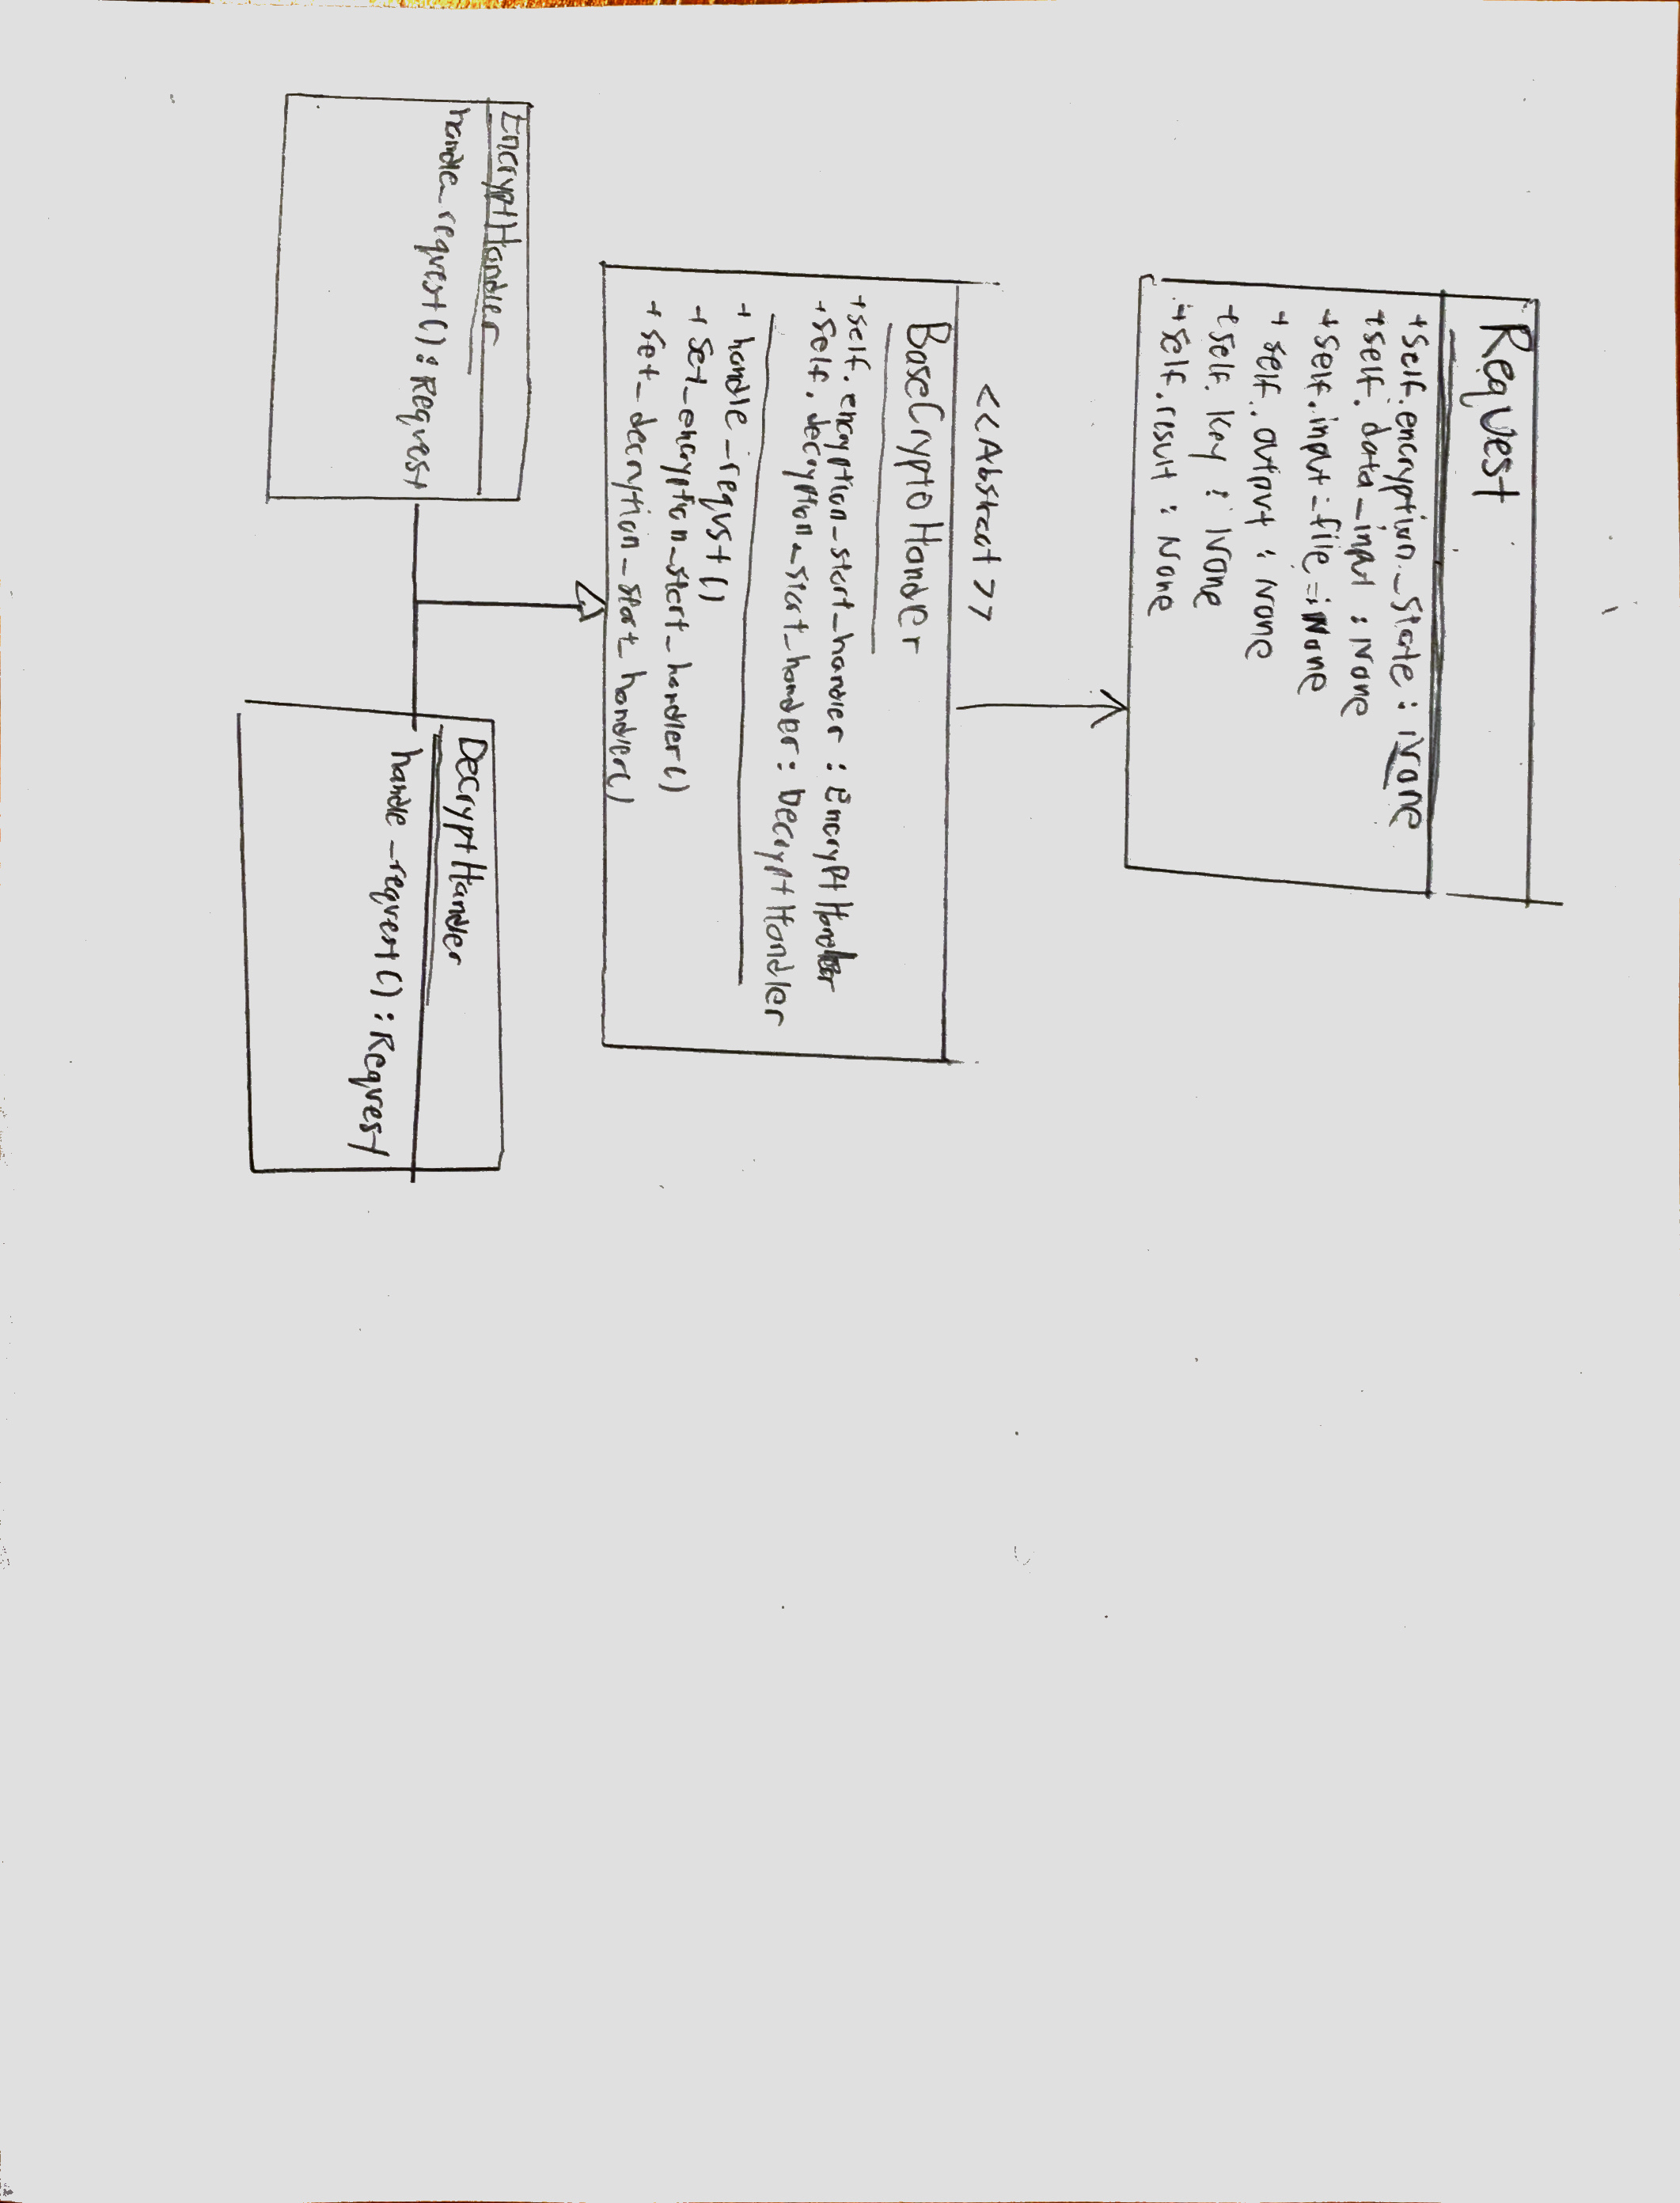 Request
+self.encryption_state : None
+self.data_input : None
+self.input_file =: None
+self.output : None
+self.key : None
+self.result : None
<<Abstract>>
BaseCryptoHandler
+self.encryption_start_handler : EncryptHandler
+self.decryption_start_handler : DecryptHandler
+ handle_requst()
+ set_encryption_start_handler()
+ set_decryption_start_handler()
EncryptHandler
handle_request() : Request
DecryptHandler
handle_request() : Request